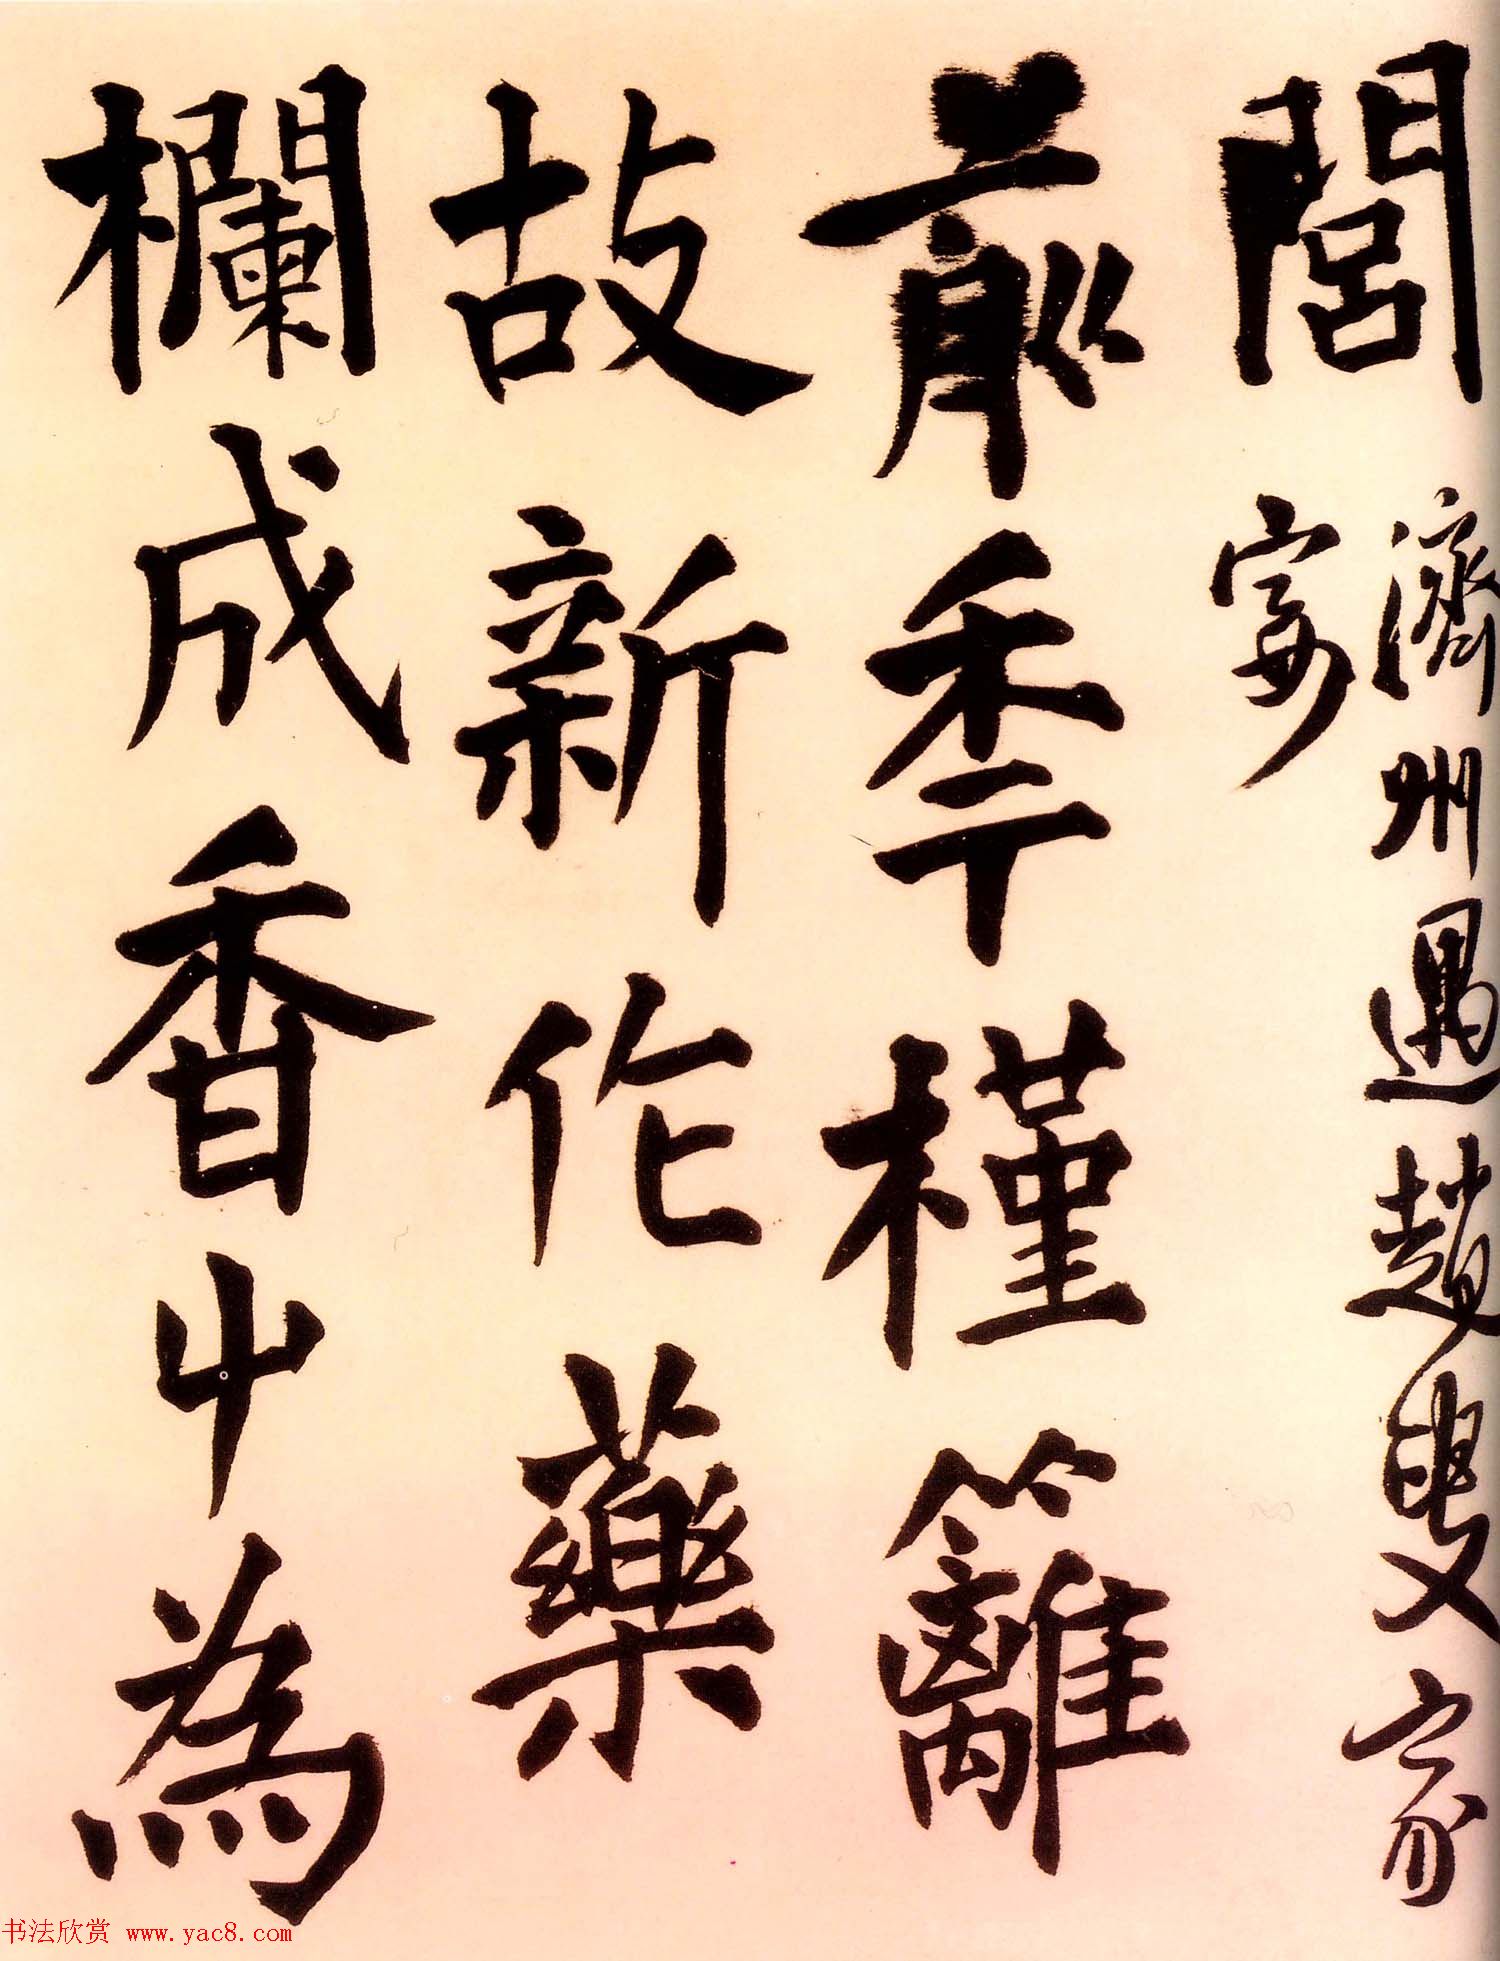 閭
濟州過趙叟家
宴
前秊槿籬
故新作藥
欄成香屮為
书法欣赏 www.yac8.com